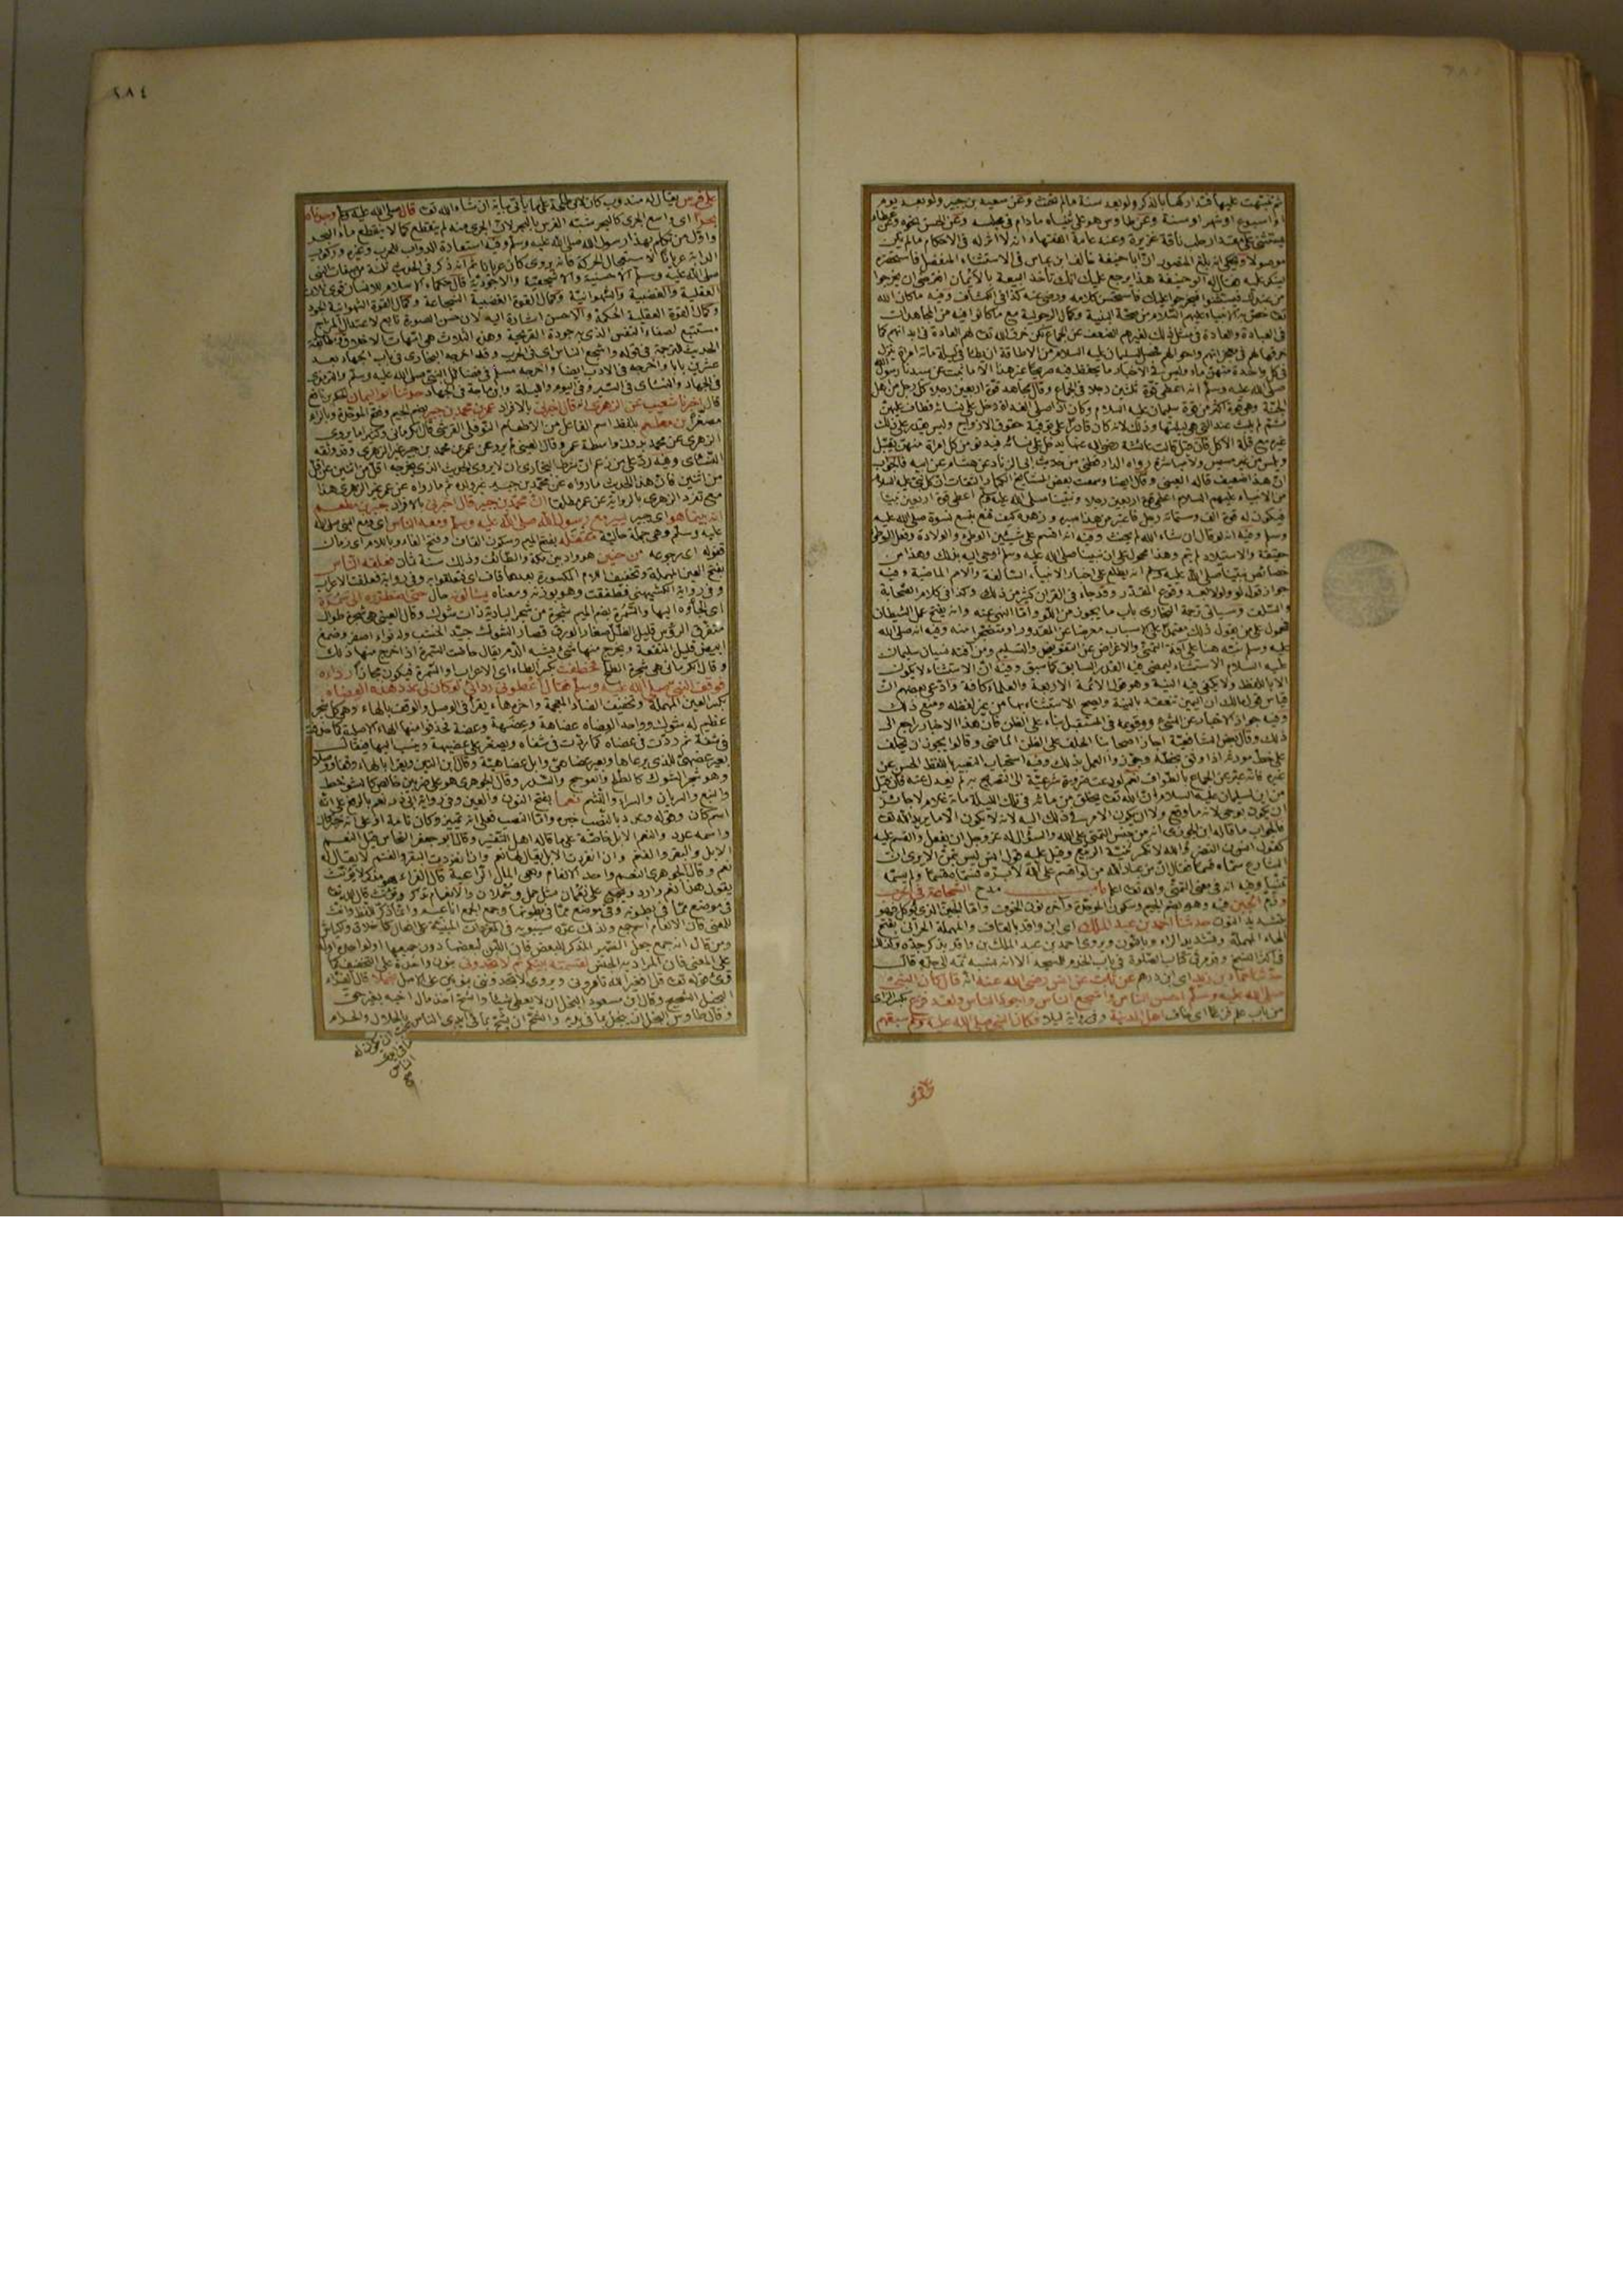 ثم تنبهت عليها فتداركها بالذكر ولو بعد سنة ما لم تحنث وعن سعيد بن جبير ولو بعد يوم
او اسبوع او شهر او سنة وعن طاوس هو على ثنياه ما دام في مجلسه وعن الحسن نحوه وعن عطاء
يستثني على مقدار حلب ناقة غزيرة وعند عامة الفقهاء انه لا اثر له في الاحكام ما لم يكن
موصولا ويحكى انه بلغ المنصور ان ابا حنيفة خالف ابن عباس في الاستثناء المنفصل فاستحضره
لينكر عليه فقال له ابو حنيفة هذا يرجع عليك انك تأخذ البيعة بالايمان افترضى ان يخرجوا
من عندك فيستثنوا فيخرجوا عليك فاستحسن كلامه ورضي عنه كذا في الكشاف وفيه ما كان الله
تعا خص به الانبياء عليهم السلام من صحة البنية وكمال الرجولية مع ما كانوا فيه من المجاهدات
في العبادة والعادة في مثل ذلك لغيرهم الضعف عن الجماع لكن خرق الله تعا لهم العادة في ابدانهم كما
خرقها لهم في معجزاتهم واحوالهم فحصل لسليمان عليه السلام من الاطاقة ان يطأ في ليلة مائة امرأة ينزل
في كل واحدة منهن ماء وليس في الاخبار ما يحفظ فيه صريحا غير هذا الا ما ثبت عن سيدنا رسول الله
صلى الله عليه وسلم انه اعطي قوة ثلثين رجلا في الجماع وقال مجاهد قوة اربعين رجلا كل رجل من اهل
الجنة وهو قوة اكثر من قوة سليمان عليه السلام وكان اذا صلى الغداة دخل على نسائه فطاف عليهن
ثم يبيت عند التي هي ليلتها وذلك لانه كان قادرا على توفية حقوق الازواج وليس يقدر على ذلك
غيره مع قلة الاكل
من الانبياء عليهم السلام اعطي قوة اربعين رجلا ونبينا صلى الله عليه وسلم اعطي قوة اربعين نبيا
وسلم وفيه انه لو قال ان شاء الله لم يحنث وفيه انه اقسم على شيئين الوطئ والولادة وفعل الوطئ
حقيقة والاستيلاد لم يتم وهذا محمول على ان نبينا صلى الله عليه وسلم اوحي اليه بذلك وهذا من
خصائص نبينا صلى الله عليه وسلم انه يطلع على اخبار الانبياء السالفة والامم الماضية وفيه
جواز قول لو ولولا بعد وقوع المقدر وقد جاء في القران كثير من ذلك وكذا في كلام الصحابة
والسلف وسياتي ترجمة البخاري باب ما يجوز من اللو واما النهي عنه وانه يفتح عمل الشيطان
فمحمول على من يقول ذلك معتمدا على الاسباب معرضا عن المقدور او متضجرا منه وفيه انه صلى الله
عليه وسلم نبه هنا على آفة التمني والاعراض عن التفويض والتسليم ومن آفته نسيان سليمان
عليه السلام الاستثناء ليمضي فيه القدر السابق كما سبق وفيه ان الاستثناء لا يكون
الا باللفظ ولا يكفي فيه النية وهو قول الائمة الاربعة والعلماء كافة وادعى بعضهم ان
قياس قول مالك ان اليمين تنعقد بالنية ويصح الاستثناء بها من غير لفظ ومنع ذلك
وفيه جواز الاخبار عن الشيء ووقوعه في المستقبل بناء على الظن فان هذا الاخبار راجع الى
ذلك وقال بعض الشافعية اجاز اصحابنا الحلف على الظن الماضي وقالوا يجوز ان يحلف
على خط مورثه اذا وثق بخطه وجوزوا العمل بذلك وفيه استحباب التعبير باللفظ الحسن عن
غيره فانه عبر عن الجماع بالطواف نعم لو دعت ضرورة شرعية الى التصريح به لم يعدل عنه فان قيل
من اين لسليمان عليه السلام ان الله تعا يخلق من مائه في تلك الليلة مائة غلام لا جائز
ان يكون بوحي لانه ما وقع ولا ان يكون الامر في ذلك اليه لانه لا يكون الا ما يريد الله تعا
فالجواب ما قاله ابن الجوزي انه من جنس التمني على الله والسؤال له عز وجل ان يفعل والقسم عليه
كقول انس بن النضر والله لا تكسر ثنية الربيع وقيل عليه قول انس ليس بتمن الا يرى ان
الشارع سماه قسما فقال ان من عباد الله من لو اقسم على الله لابره فسماه قسما ولم يسمه
تمنيا وفيه انه في معنى التمني والله تعا اعلم باب مدح الشجاعة في الحرب
وذم الجبن فيه وهو بضم الجيم وسكون الموحدة وآخره نون الخوف واما الجبن الذي يؤكل فهو
بتشديد النون حدثنا احمد بن عبد الملك اي ابن واقد بالقاف والمهملة الحراني بفتح
الحاء المهملة وتشديد الراء وبالنون ويروى احمد بن عبد الملك بن واقد بذكر جده وكذلك
في اكثر النسخ
حدثنا حماد بن زيد اي ابن درهم عن ثابت عن انس رضي الله عنه انه قال كان النبي
صلى الله عليه وسلم احسن الناس واشجع الناس واجود الناس ولقد فزع بكسر الزاي
من باب علم فزعا اي خاف اهل المدينة وفي رواية ليلا فكان النبي صلى الله عليه وسلم سبقهم
على فرس
٢٨٤
على فرس يقال له مندوب كان لابي طلحة على ما يأتي بيانه ان شاء الله تعا قال صلى الله عليه وسلم وجدناه
بحرا اي واسع الجري كالبحر شبه الفرس بالبحر لان الجري منه لم ينقطع كما لا ينقطع ماء البحر
واول من تكلم بهذا رسول الله صلى الله عليه وسلم وفيه استعارة الدواب للحرب وغيره وركوب
الدابة عريانا لاستعجال الحركة فانه يروى كان عريانا ثم انه ذكر في الحديث ثلثة من صفات النبي
صلى الله عليه وسلم الاحسنية والاشجعية والاجودية قال حكماء الاسلام للانسان قوى ثلاث
العقلية والغضبية والشهوانية وكمال القوة الغضبية الشجاعة وكمال القوة الشهوانية الجود
وكمال القوة العقلية الحكمة والاحسن اشارة اليه لان حسن الصورة تابع لاعتدال المزاج
مستتبع لصفاء النفس الذي به جودة القريحة وهذه الثلاث هي امهات الاخلاق ومطابقة
الحديث للترجمة في قوله واشجع الناس اي في الحرب وقد اخرجه البخاري في باب الجهاد بعد
عشرين بابا واخرجه في الادب ايضا واخرجه مسلم في فضائل النبي صلى الله عليه وسلم والترمذي
في الجهاد والنسائي في السير وفي اليوم والليلة وابن ماجة في الجهاد حدثنا ابو اليمان الحكم بن نافع
قال اخبرنا شعيب عن الزهري انه قال اخبرني بالافراد عمر بن محمد بن جبير بضم الجيم وفتح الموحدة وبالراء
مصغرا ابن مطعم بلفظ اسم الفاعل من الاطعام النوفلي القرشي قال الكرماني وكثيرا ما يروي
الزهري عن محمد بدون واسطة عمر وقال العيني لم يرو عن عمر بن محمد بن جبير غير الزهري وقد وثقه
النسائي وفيه رد على من زعم ان شرط البخاري ان لا يروي الحديث الذي يخرجه اقل من اثنين عن اقل
من اثنين فان هذا الحديث ما رواه عن محمد بن جبير غير ولده ثم ما رواه عن عمر غير الزهري هذا
مع تفرد الزهري بالرواية عن عمر مطلقا ان محمد بن جبير قال اخبرني بالافراد جبير بن مطعم
انه بينما هو اي جبير يسير مع رسول الله صلى الله عليه وسلم ومعه الناس اي ومع النبي صلى الله
عليه وسلم وهي جملة حالية مقفله بفتح الميم وسكون القاف وفتح الفاء وباللام اي زمان
قفوله اي رجوعه من حنين هو واد بين مكة والطائف وذلك سنة ثمان فعلقه الناس
بفتح العين المهملة وتخفيف اللام المكسورة بعدها قاف اي تعلقوا به وفي رواية فعلقت الاعراب
وفي رواية الكشميهني فطفقت وهو بوزنه ومعناه يسألونه حال حتى اضطروه الى سمرة
اي الجأوه اليها والسمرة بضم الميم شجرة من شجر البادية ذات شوك وقال العيني هي شجرة طوال
متفرق الرؤس قليل الظل صغار الورق قصار الشوك جيد الخشب وله نوار اصفر وصمغ
ابيض قليل المنفعة ويخرج منها شيء يشبه الدم يقال حاضت السمرة اذا خرج منها ذلك
وقال الكرماني هي شجرة الطلح فخطفت بكسر الطاء اي الاعراب او السمرة فيكون مجازا رداءه
فوقف النبي صلى الله عليه وسلم فقال اعطوني ردائي لو كان لي عدد هذه العضاه
بكسر العين المهملة وتخفيف الضاد المعجمة واخره هاء يقرأ في الوصل والوقف بالهاء وهي كل شجر
عظيم له شوك وواحد العضاه عضاهة وعضهة وعضة بحذف منها الهاء الاصلية كما حذفت
في شفة ثم ردت في عضاه كما ردت في شفاه ويصغر على عضيهة وينسب اليها فيقال
بعير عضهي للذي يرعاها وبعير عضاهي وابل عضاهية وقال ابن التين ويقرأ بالهاء وقفا ووصلا
وهو شجر الشوك كالطلح والعوسج والسدر وقال الجوهري هو على ضربين خالص
والنبع والشريان والسراء والنشم نعما بفتح النون والعين وفي رواية ابي ذر نعم بالرفع على انه
اسم كان وقوله وعدد بالنصب خبره واما النصب فعلى انه تمييز وكان تامة او على انه خبر كان
واسمه عدد والنعم الابل خاصة على ما قاله اهل التفسير وقال ابو جعفر النحاس قيل النعم
الابل والبقر والغنم وان انفردت الابل يقال لها نعم وان انفردت البقر والغنم لا يقال له
نعم وقال الجوهري النعم واحد الانعام وهي المال الراعية قال الفراء هو مذكر لا يؤنث
يقول هذا نعم وارد ويجمع على نعمان مثل حمل وحملان والانعام تذكر وتؤنث قال الله تعا
في موضع مما في بطونه وفي موضع مما في بطونها وجمع الجمع اناعيم
ومن قال انه جمع جعل الضمير المذكر للبعض فان اللبن لبعضها دون جميعها
على المعنى فان المراد به الجنس لقسمته بينكم ثم لا تجدوني بنون واحدة على التخفيف كما
قرئ قوله تعا قل افغير الله تأمروني ويروى لا تجدونني بنونين على الاصل بخيلا قال القراء
البخل الشح وقال ابن مسعود البخل ان لا يعطي شيئا والشح اخذ مال اخيه بغير حق
وقال طاوس البخل ان يبخل بما في يديه والشح ان يشح بما في ايدي الناس بالحلال والحرام